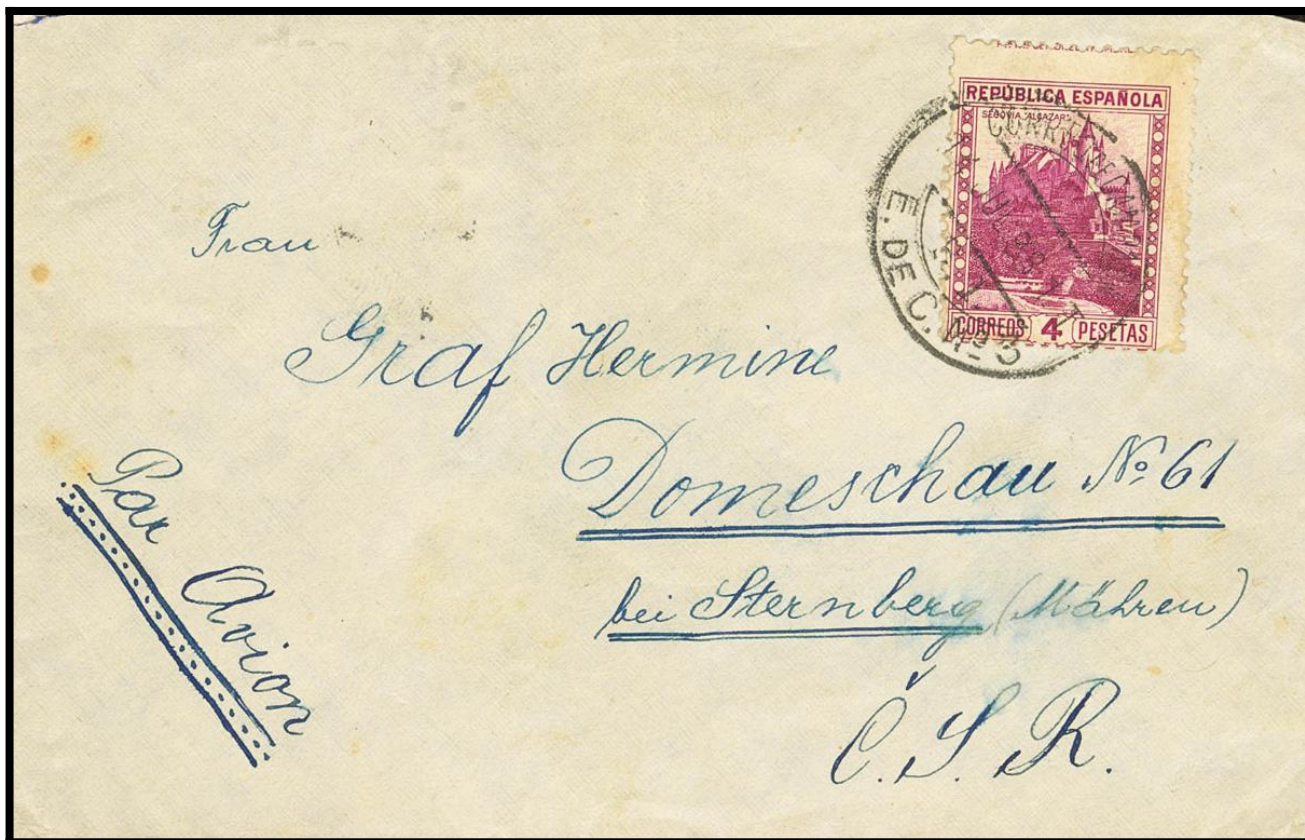 REPÚBLICA ESPAÑOLA
SEGOVIA "ALCAZAR"
CORREOS 4 PESETAS
E. DE C. Nº 3
Frau
Graf Hermine
Domeschau Nº 61
bei Sternberg (Mähren)
Č. S. R.
Par Avion